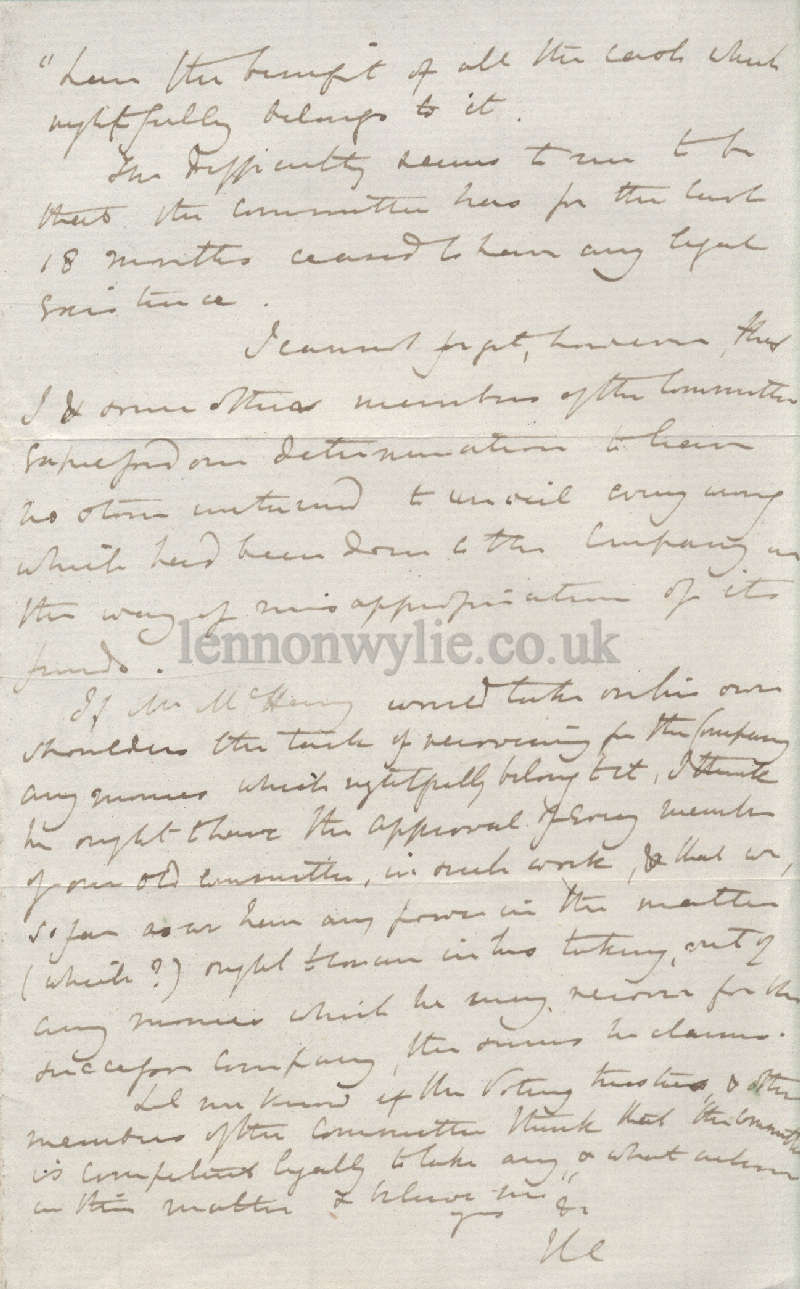 "have the benefit of all the cash which
rightfully belongs to it.
The difficulty seems to me to be
that the committee has for the last
18 months ceased to have any legal
existence.
I cannot forget, however, that
I & some other members of the Committee
expressed our determination to leave
no stone unturned to unveil every wrong
which had been done to the Company in
the way of misappropriation of its
funds.
lennonwylie.co.uk
If Mr McHenry would take on his own
shoulders the task of recovering for the Company
any monies which rightfully belong to it, I think
he ought to have the approval of every member
of our old committee, in such work, & that we,
so far as we have any power in the matter
(which?) ought to concur in his taking, out of
any monies which he may recover for the
successor company, the sums he claims.
Let me know if the Voting trustees, & other
members of the Committee think that the Committee
is competent legally to take any, & what action
in this matter & believe me"
yrs &c